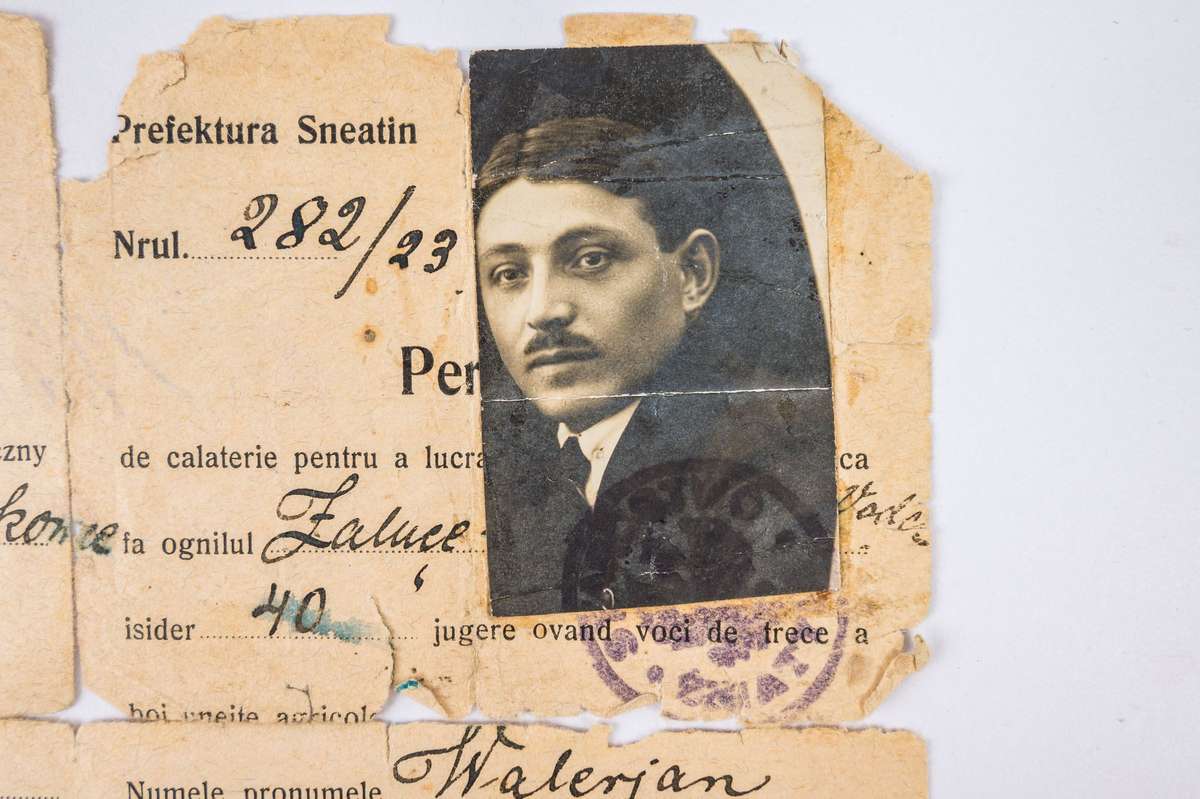 Prefektura Sneatin
Nrul. 282/23
Per
czny
de calaterie pentru a lucra
ca
kowce
fa ognilul Załuçe
isider 40 jugere ovand voci de trece a
boi uneite agricol
Numele pronumele Walerjan